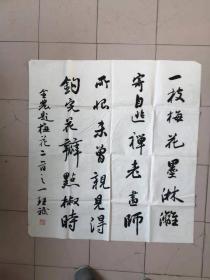 一枝梅花墨淋漓
寄自逃禅老画師
所恨未曾親見得
鈎完花瓣點椒時
金農題梅花二首之一